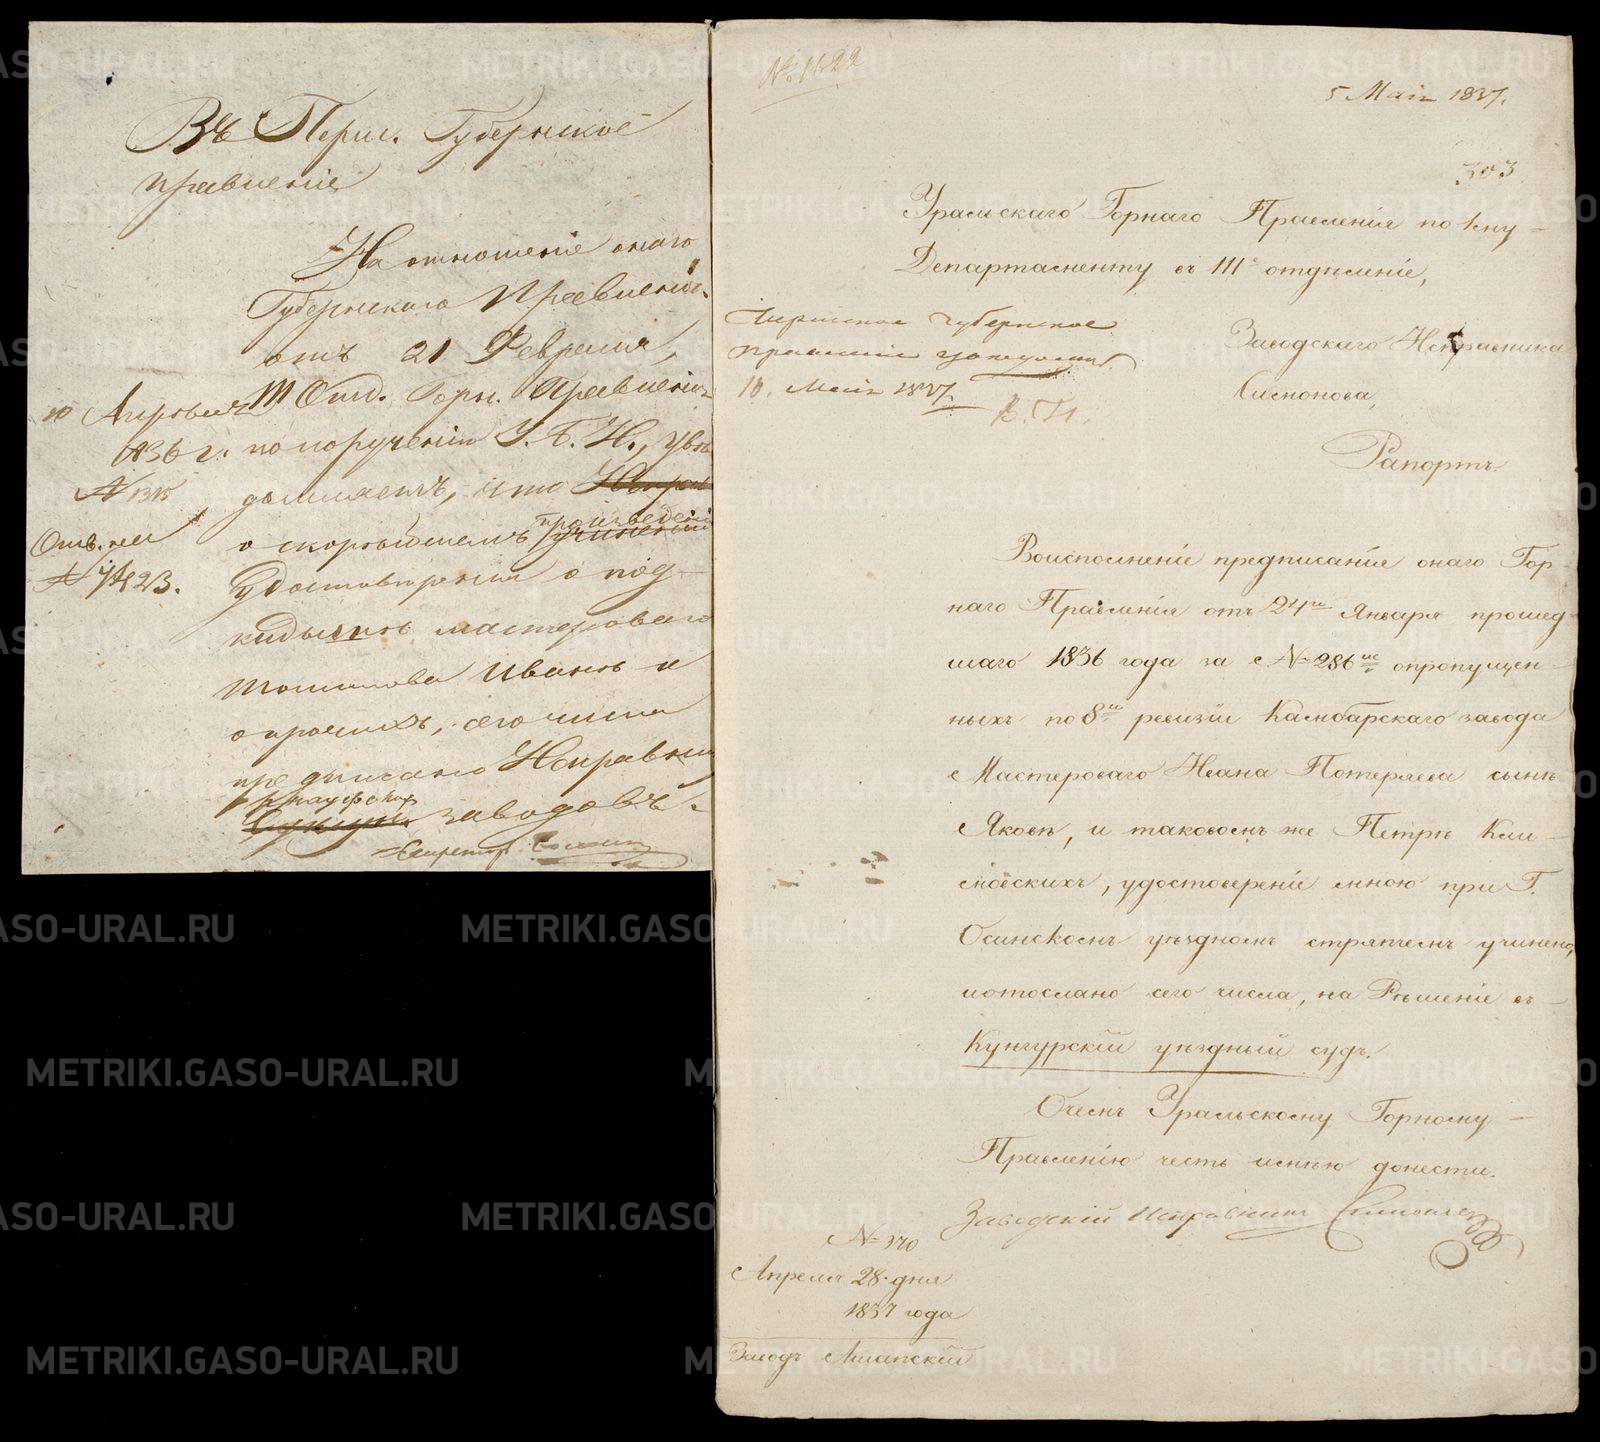 Въ Перм. Губернское
правление
На отношение онаго
Губернскаго Правления
отъ 21 Февраля,
III Отд. Горн. Правления
по поручению У. Г. Н., уве
домляетъ, что
о скорѣйшемъ произведении
удостоверения о под
кидышѣ мастероваго
Иванѣ и
о прочихъ, сего числа
предписано Исправни
заводовъ.
10 Апрель
1836 г.
№ 1315
№ 7423.
№ 1622
5 Маія 1837.
303
Уральскаго Горнаго Правленія по 1му
Департаменту въ III отдѣленіе,
Заводскаго Исправника
Симонова,
Пермское губернское
правленіе уведомить
10. Маія 1837.
Рапортъ.
Воисполненіе предписанія онаго Гор
наго Правленія отъ 24го Января прошед
шаго 1836 года за № 286м опропущен
ныхъ по 8й ревизіи Камбарскаго завода
Мастероваго Ивана Потеряева сынѣ
Яковѣ, и таковомъ же Петрѣ Кли
мовскихъ, удостовереніе мною при Г.
Осинскомъ уѣздномъ стряпчемъ учинено,
иотослано сего числа, на Рѣшеніе въ
Кунгурскій уѣздный судъ.
Очемъ Уральскому Горному
Правленію честь имѣю донести.
Заводскій Исправникъ Симоновъ
№ 370
Апреля 28 дня
1837 года
Заводъ Ашапскій
METRIKI.GASO-URAL.RU